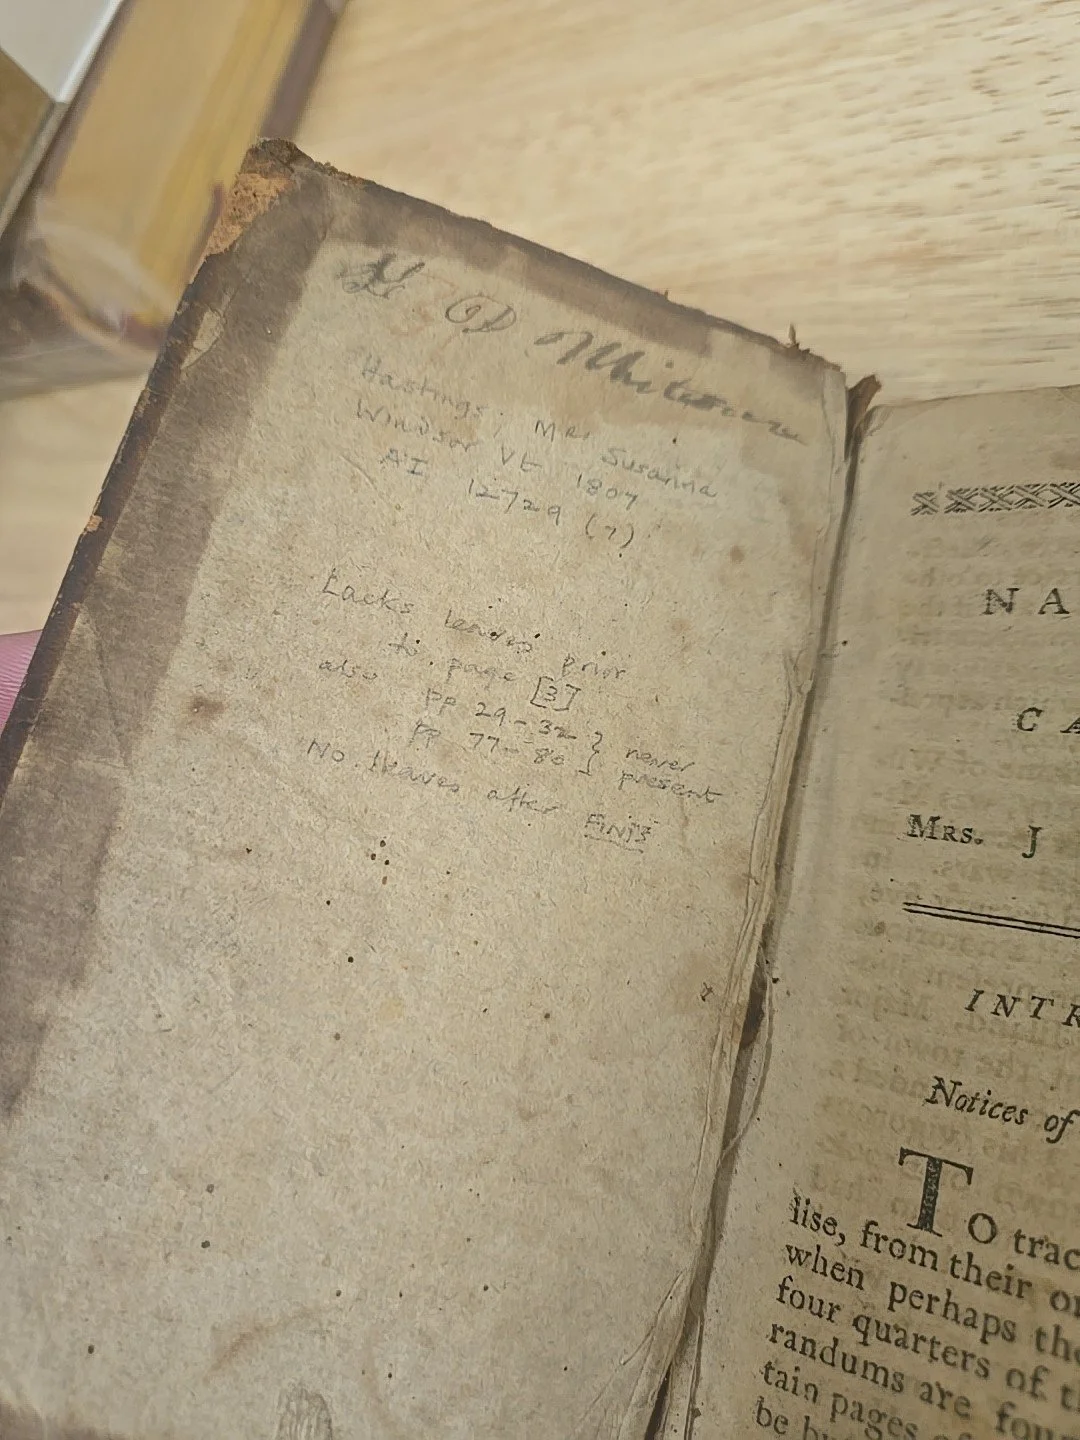 Hastings, Mrs Susanna
Windsor Vt 1807
AI 12729 (7)
Lacks leaves prior
to page [3]
also pp 29-32 } never
pp 77-80 } present
No leaves after FINIS
NA
CA
MRS. J
INTR
Notices of
TO trac
lise, from their or
when perhaps the
four quarters of t
randums are foun
tain pages of
be bu